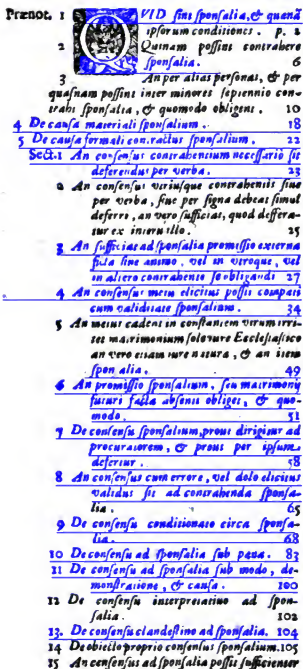 Prænot. 1 QVID sint sponsalia, & quænā
ipsorum conditiones. p. 1
2 Quinam possint contrahere
sponsalia. 6
3 An per alias personas, & per
quasnam possint inter minores septennio con-
trahi sponsalia, & quomodo obligent. 10
4 De causa materiali sponsalium. 18
5 De causa formali contractus sponsalium. 22
Sect. 1 An consensus contrahentium necessariò sit
deferendus per verba. 23
2 An consensus vtriusque contrahentis siue
per verba, siue per signa debeat simul
deferri, an vero sufficiat, quod deffera-
tur ex interuallo. 25
3 An sufficiat ad sponsalia promissio externa
ficta sine animo, vel in vtroque, vel
in altero contrahente se obligandi 27
4 An consensus metu elicitus possit compati
cum validitate sponsalium. 34
5 An metus cadens in constantem virum irri-
tet matrimonium solo iure Ecclesiastico
an vero etiam iure natura, & an item
sponsalia. 49
6 An promissio sponsalium, seu matrimonij
futuri facta absenti obliget, & quo-
modo. 51
7 De consensu sponsalium, prout dirigitur ad
procuratorem, & prout per ipsum
defertur. 58
8 An consensus cum errore, vel dolo elicitus
validus sit ad contrahenda sponsa-
lia. 65
9 De consensu conditionato circa sponsa-
lia. 68
10 De consensu ad sponsalia sub pœna. 83
11 De consensu ad sponsalia sub modo, de-
monstratione, & causa. 100
12 De consensu interpretatiuo ad spon-
salia. 102
13. De consensu clandestino ad sponsalia. 104
14 De obiecto proprio consensus sponsalium. 105
15 An consensus ad sponsalia possit sufficienter